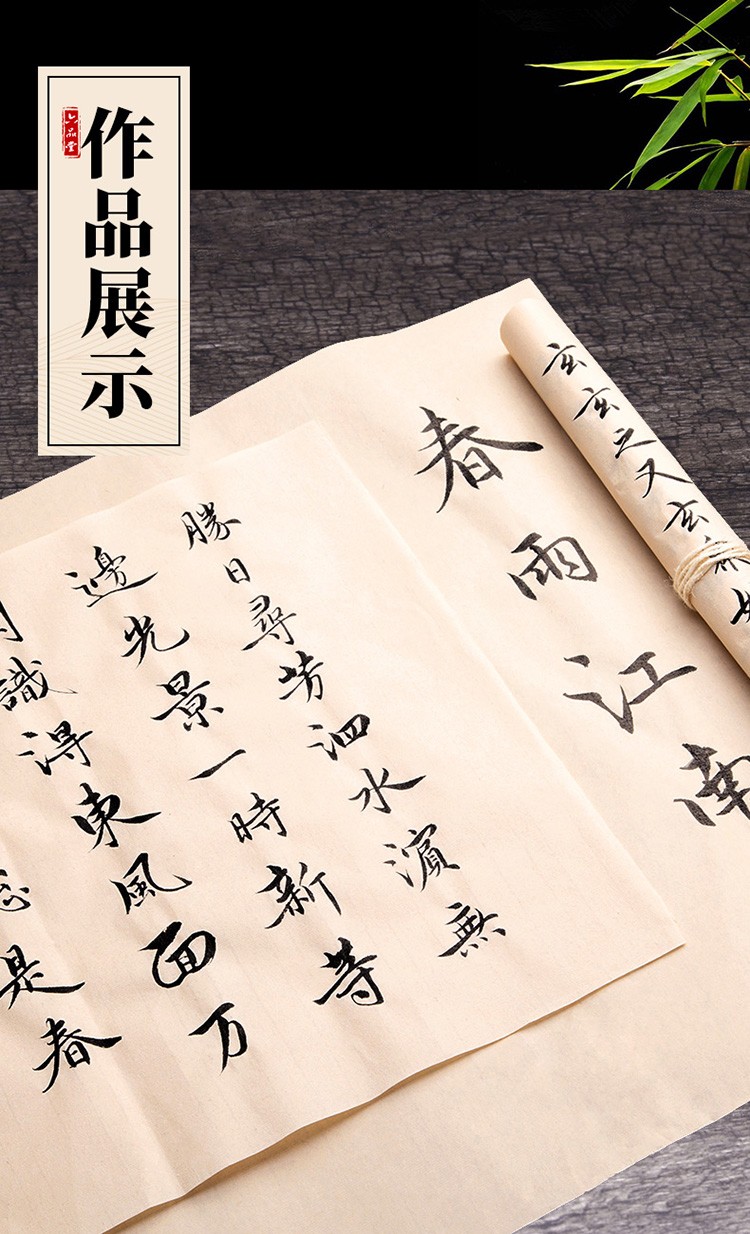 六品堂
作品展示
玄玄之又玄
春雨江南
勝日尋芳泗水濱無
邊光景一時新等
識得東風面万
是春